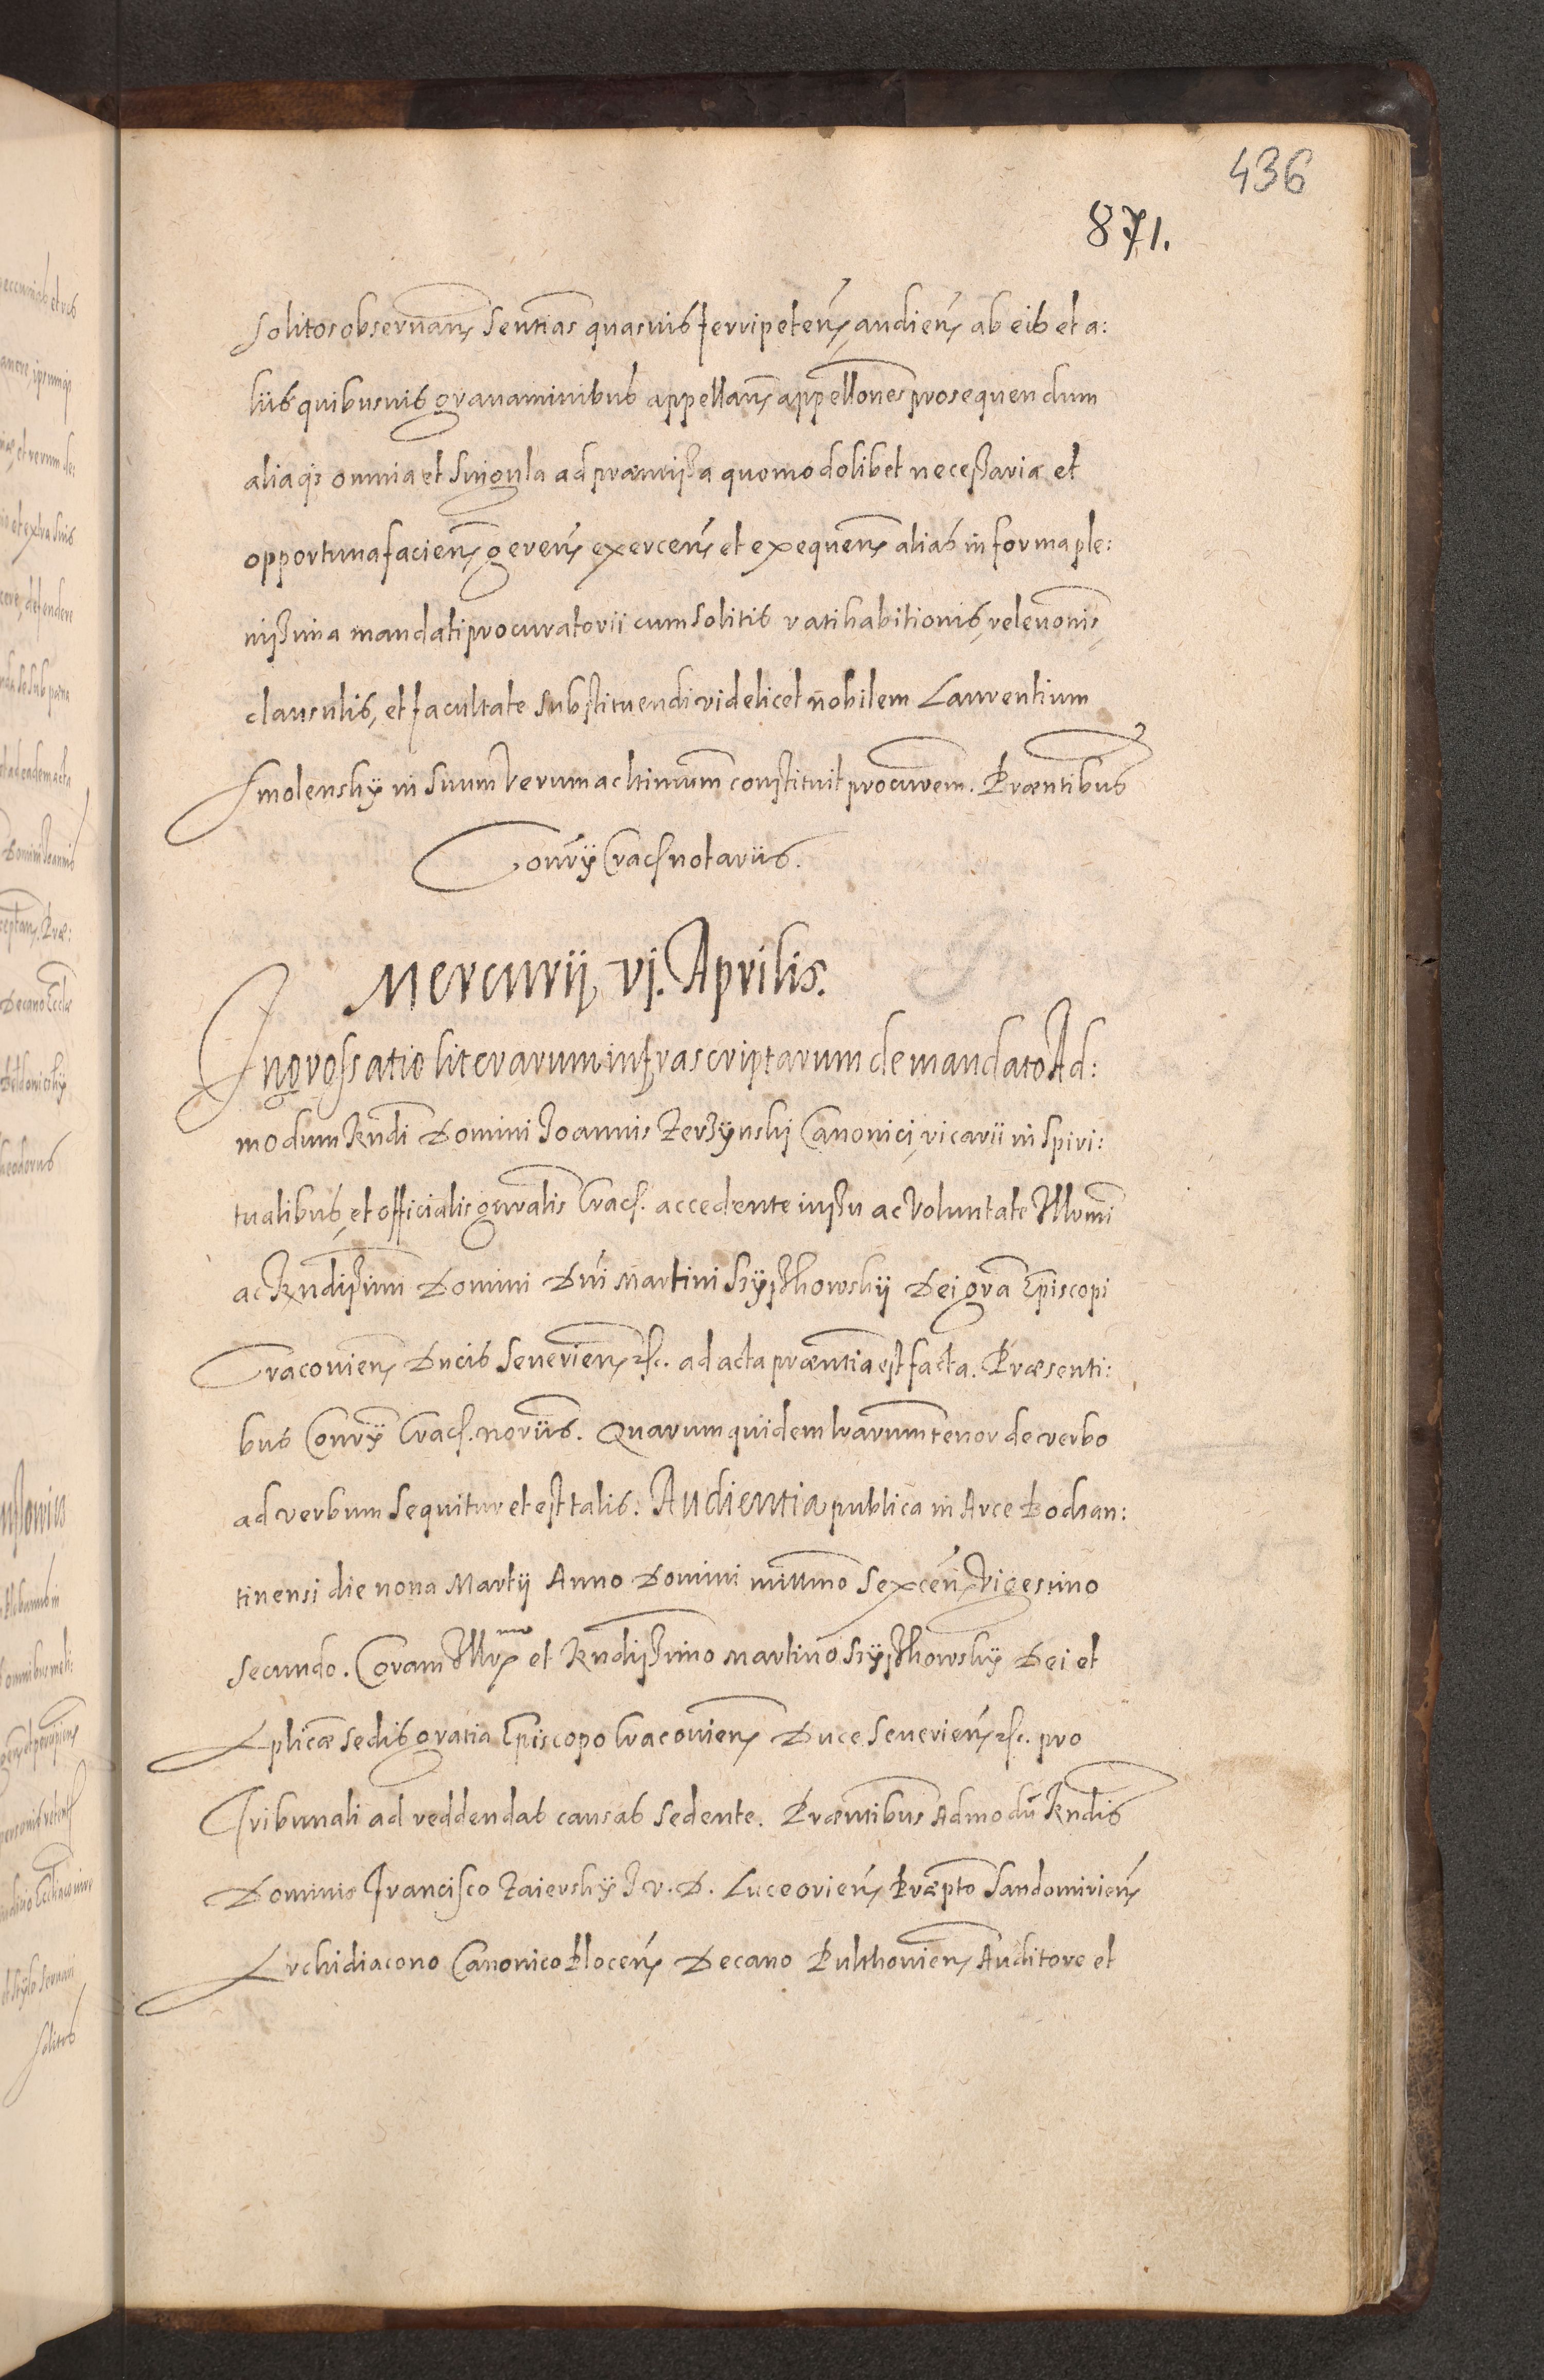 436
871.
solitos observan̄ sentias quasuis ferri peten̄, audien̄ ab eis et a:
liis quibusuis grauaminibus appellan̄ appellones prosequendum
aliaq₃ omnia et singula ad præmissa quomodolibet necessaria et
opportuna facien̄ geren̄ exercen̄ et exequen̄ alias in forma ple:
nissima mandati procuratorii cum solitis ratihabitionis, releuonis
clausulis, et facultate substituendi videlicet nobilem Laurentium
Smolensky in suum verum ac ltimum constituit procurem. Præntibus
Conrÿ Crac. notariis.
Mercurii, vj. Aprilis.
Ingrossatio literarum infrascriptarum de mandato Ad:
modum Rndi Domini Joannis Zerzynskj Canonici, vicarii in spiri:
tualibus, et officialis gnralis Crac. accedente iussu ac voluntate Illrmi
ac Rndissimi Domini Dni Martini Szÿszkowskÿ Dei gra Episcopi
Cracouien̄ Ducis Seuerien̄ etc. ad acta præntia est facta. Præsenti:
bus Conrÿ Crac. noriis. Quarum quidem lrarum tenor de verbo
ad verbum sequitur et est talis. Audientia publica in Arce Bodzan:
tinensi die nona Martij Anno Domini millmo sexcen̄ vigesimo
secundo. Coram Illr^mo et Rndissimo Martino Szÿszkowskÿ Dei et
Aplicæ sedis gratia Episcopo Cracouien̄ Duce Seuerien̄ etc. pro
Tribunali ad reddendas causas sedente. Præntibus Admodū Rndis
Dominis Francisco Zaierskÿ J. V. D. Luceorien̄ Præpto Sandomirien̄
Archidiacono Canonico Plocen̄ Decano Pulthouien̄ Auditore et